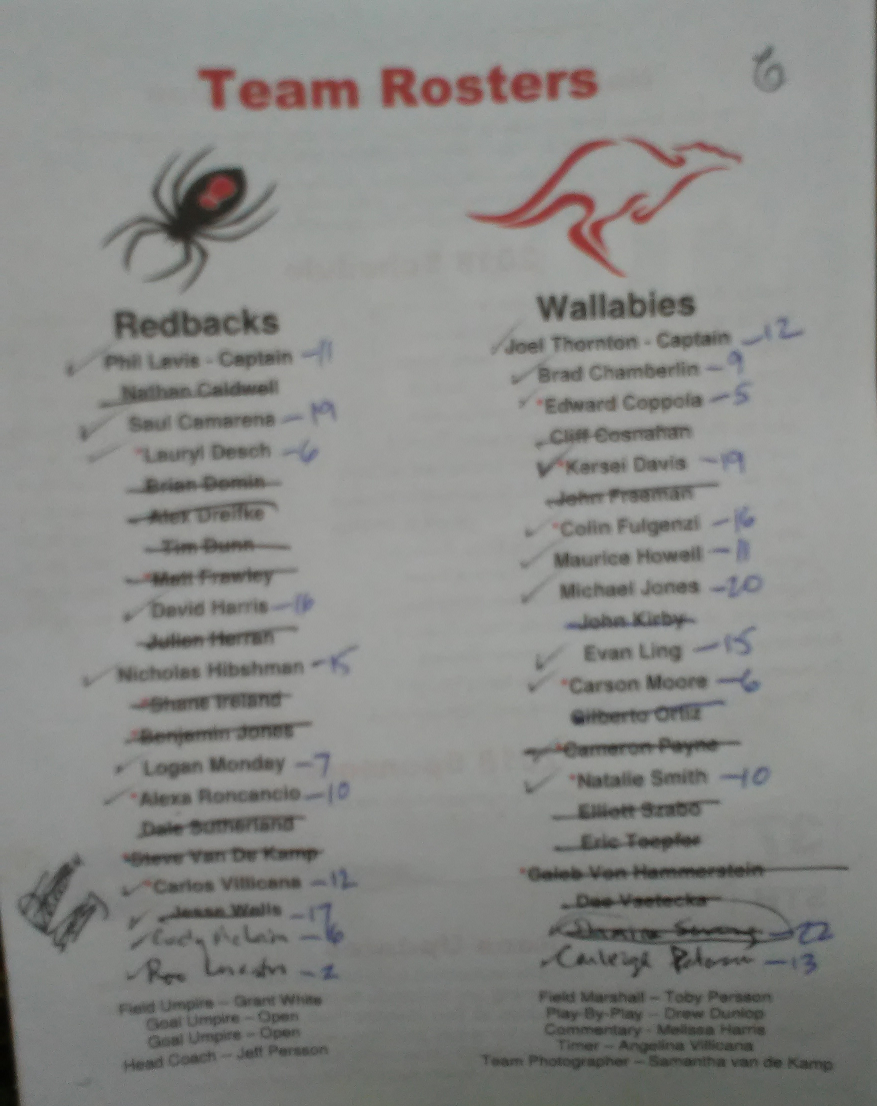 Team Rosters
6
Redbacks
Phil Lavis - Captain -11
Nathan Caldwell
Saul Camarena -19
*Lauryl Desch -6
Brian Domin
Alex Dreifke
Tim Dunn
*Matt Frawley
David Harris -16
Julien Herran
Nicholas Hibshman -15
*Shane Ireland
*Benjamin Jones
Logan Monday -7
*Alexa Roncancio -10
Dale Sutherland
*Steve Van De Kamp
*Carlos Villicana -12
Jesse Wells -17
Field Umpire – Grant White
Goal Umpire – Open
Goal Umpire – Open
Head Coach – Jeff Persson
Wallabies
Joel Thornton - Captain -12
Brad Chamberlin -9
*Edward Coppola -5
Cliff Cosnahan
*Kersei Davis -19
John Freeman
*Colin Fulgenzi -16
Maurice Howell -11
Michael Jones -20
John Kirby
Evan Ling -15
*Carson Moore -6
Gilberto Ortiz
*Cameron Payne
*Natalie Smith -10
Elliott Szabo
Eric Toepfer
*Caleb Von Hammerstein
Dee Vsetecka
-22
Carleigh -13
Field Marshall – Toby Persson
Play-By-Play – Drew Dunlop
Commentary - Melissa Harris
Timer – Angelina Villicana
Team Photographer – Samantha van de Kamp